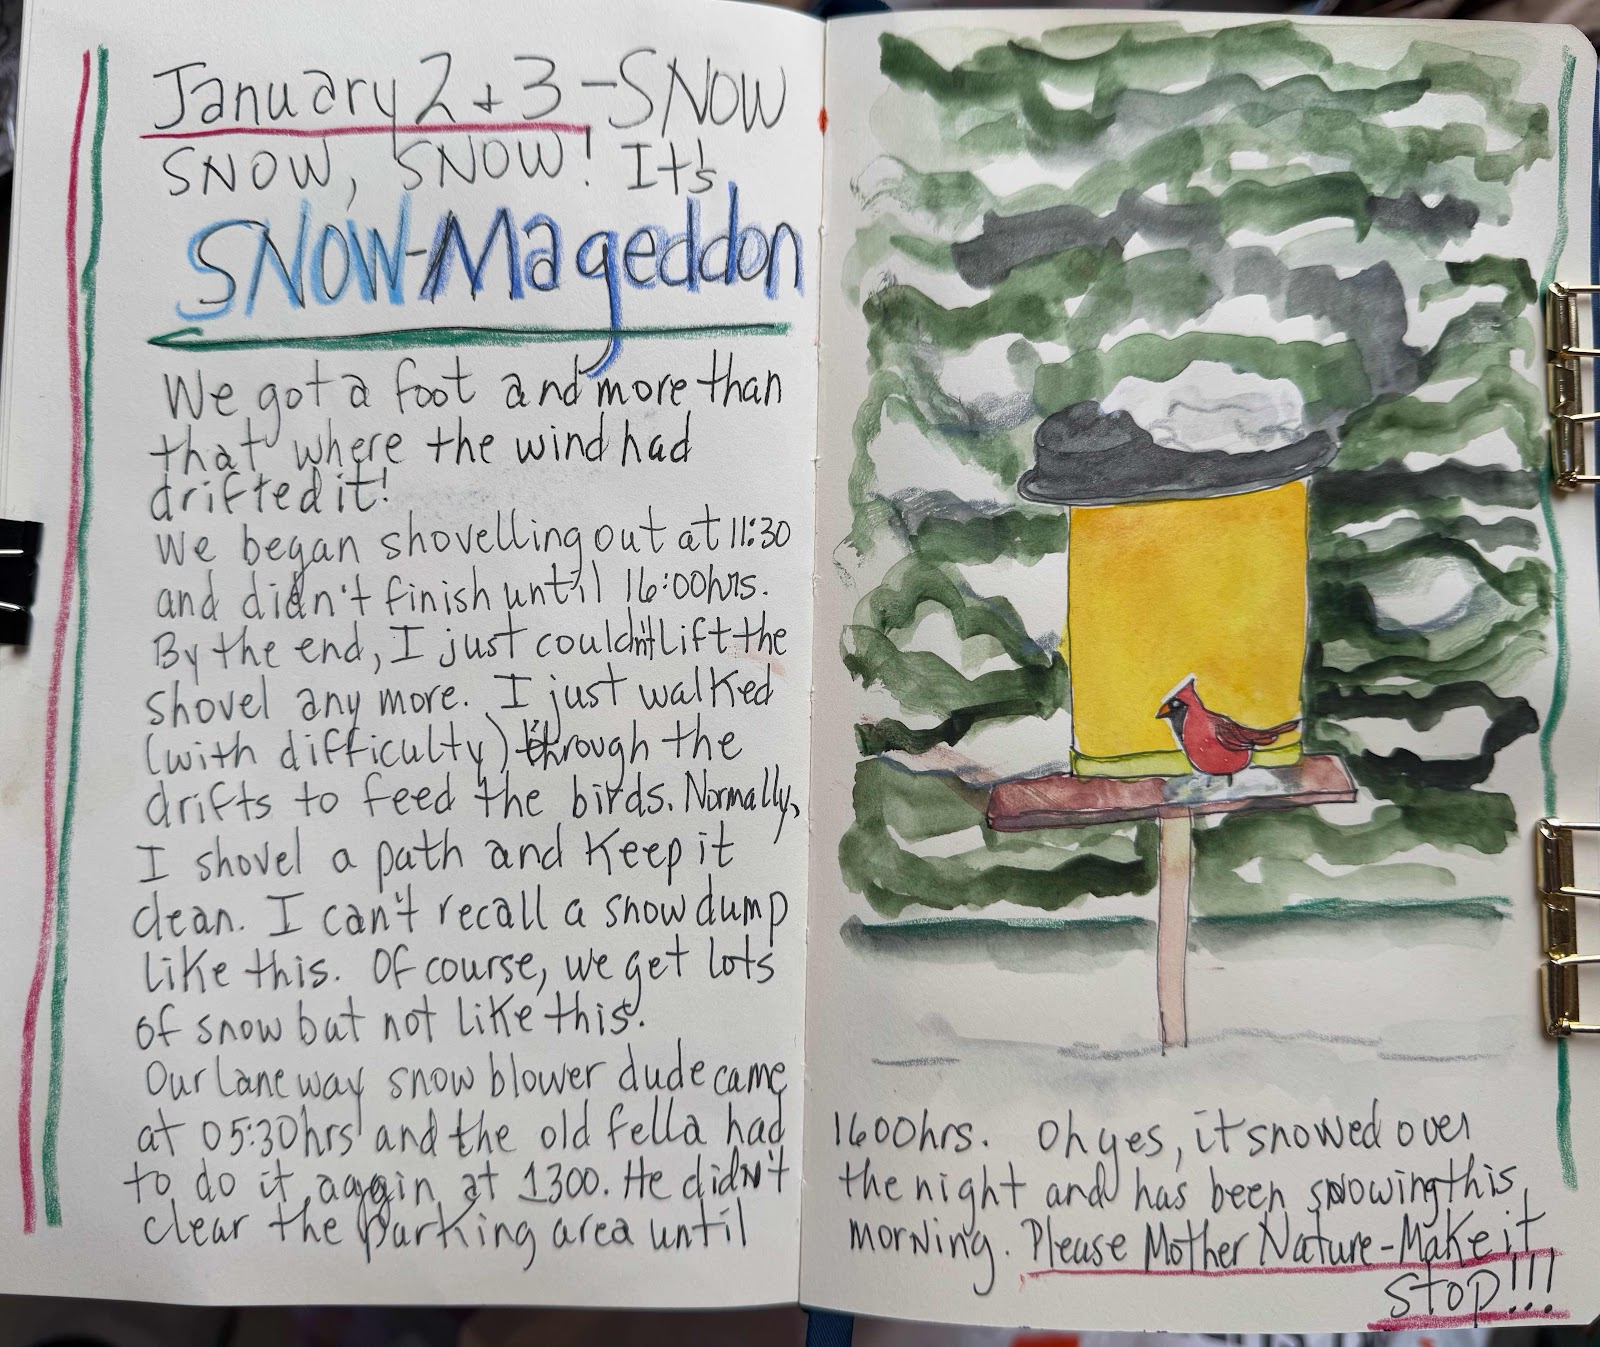 January 2 + 3 - SNOW
SNOW, SNOW! It's
SNOW-Mageddon
We got a foot and more than
that where the wind had
drifted it!
We began shovelling out at 11:30
and didn't finish until 16:00hrs.
By the end, I just couldn't lift the
shovel any more. I just walked
(with difficulty) through the
drifts to feed the birds. Normally,
I shovel a path and keep it
clean. I can't recall a snow dump
like this. Of course, we get lots
of snow but not like this.
Our laneway snow blower dude came
at 05:30hrs and the old fella had
to do it again at 1300. He didn't
clear the parking area until
1600hrs. Oh yes, it snowed over
the night and has been snowing this
morning. Please Mother Nature - Make it
Stop!!!